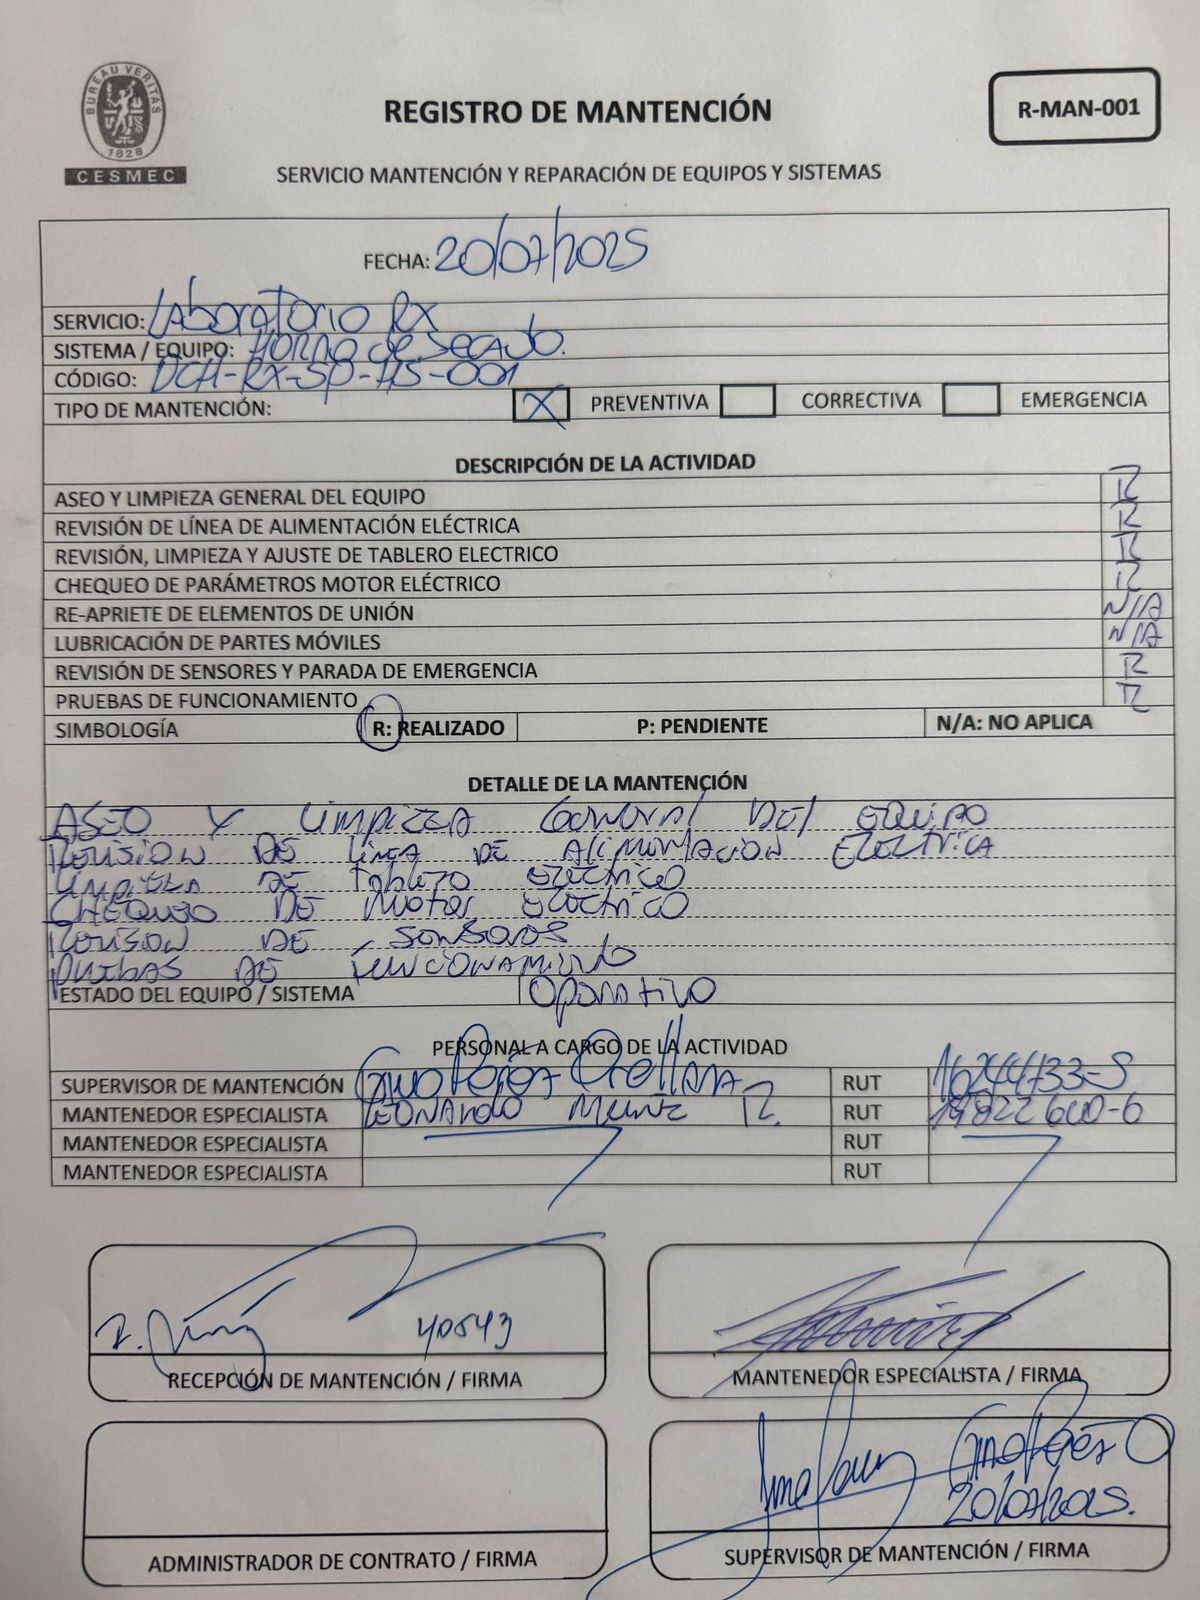 BUREAU VERITAS
1828
CESMEC
REGISTRO DE MANTENCIÓN
R-MAN-001
SERVICIO MANTENCIÓN Y REPARACIÓN DE EQUIPOS Y SISTEMAS
FECHA: 20/07/2025
SERVICIO: Laboratorio RX
SISTEMA / EQUIPO: Horno de Secado.
CÓDIGO: DCH-RX-SP-HS-001
TIPO DE MANTENCIÓN: X PREVENTIVA CORRECTIVA EMERGENCIA
DESCRIPCIÓN DE LA ACTIVIDAD
ASEO Y LIMPIEZA GENERAL DEL EQUIPO R
REVISIÓN DE LÍNEA DE ALIMENTACIÓN ELÉCTRICA R
REVISIÓN, LIMPIEZA Y AJUSTE DE TABLERO ELECTRICO R
CHEQUEO DE PARÁMETROS MOTOR ELÉCTRICO R
RE-APRIETE DE ELEMENTOS DE UNIÓN N/A
LUBRICACIÓN DE PARTES MÓVILES N/A
REVISIÓN DE SENSORES Y PARADA DE EMERGENCIA R
PRUEBAS DE FUNCIONAMIENTO R
SIMBOLOGÍA R: REALIZADO P: PENDIENTE N/A: NO APLICA
DETALLE DE LA MANTENCIÓN
ASEO Y Limpieza General DEl EQUIPO
Revision DE Linea DE Alimentacion Electrica
Limpieza DE tablero Electrico
CHEQUEO DE Motor Electrico
Revision DE Sensores
Pruebas DE Funcionamiento
ESTADO DEL EQUIPO / SISTEMA Operativo
PERSONAL A CARGO DE LA ACTIVIDAD
SUPERVISOR DE MANTENCIÓN Orellana RUT 16244733-5
MANTENEDOR ESPECIALISTA Leonardo Muñoz R. RUT 19822600-6
MANTENEDOR ESPECIALISTA RUT
MANTENEDOR ESPECIALISTA RUT
40543
RECEPCIÓN DE MANTENCIÓN / FIRMA
MANTENEDOR ESPECIALISTA / FIRMA
20/07/2025.
ADMINISTRADOR DE CONTRATO / FIRMA
SUPERVISOR DE MANTENCIÓN / FIRMA